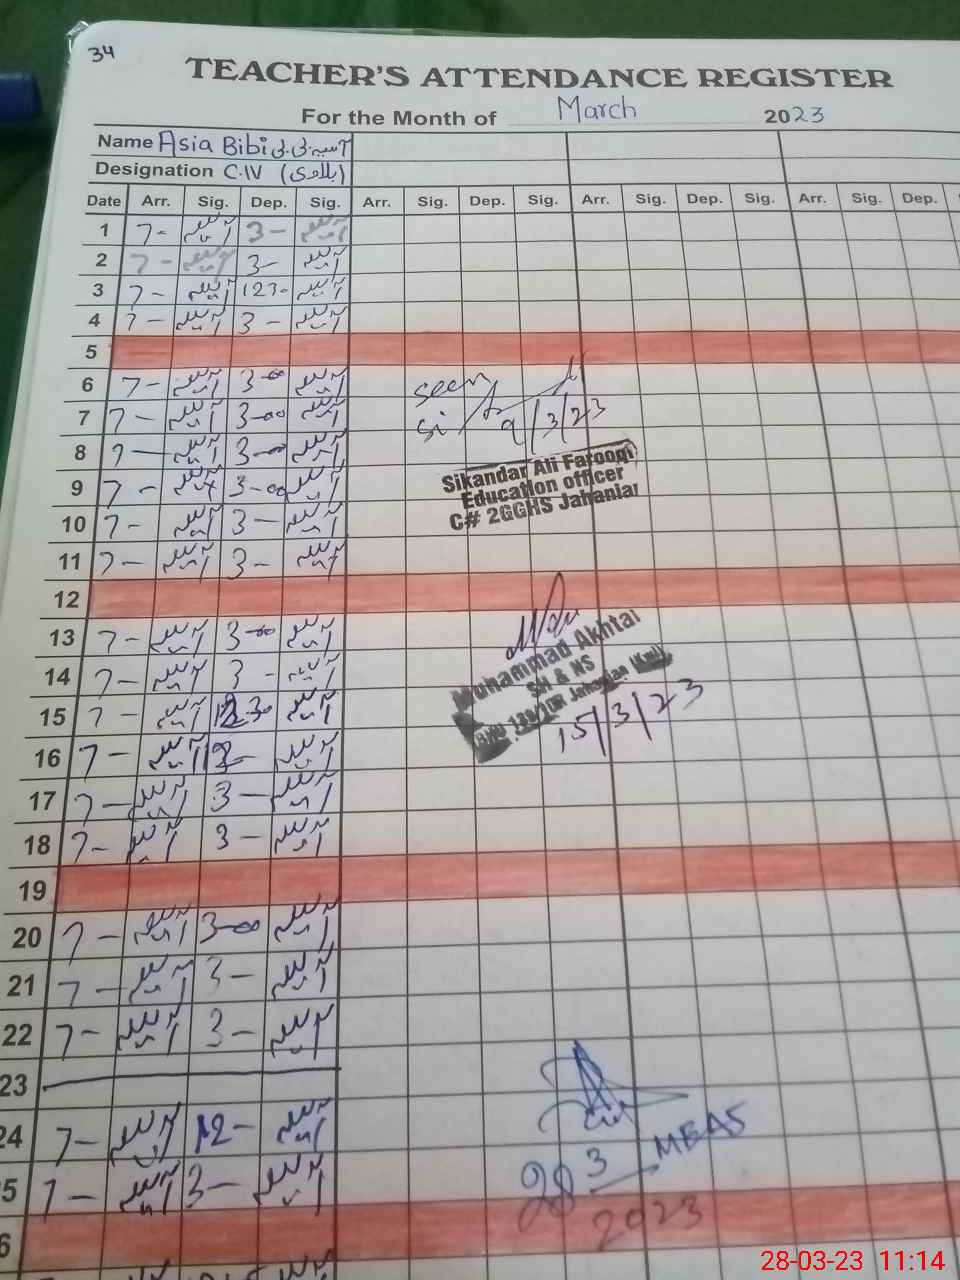 34
TEACHER'S ATTENDANCE REGISTER
For the Month of March 2023
Name Asia Bibi آسیہ بی بی
Designation C.IV
Date Arr. Sig. Dep. Sig. Arr. Sig. Dep. Sig. Arr. Sig. Dep. Sig. Arr. Sig. Dep.
1 7- آسیہ 3- آسیہ
2 7- آسیہ 3- آسیہ
3 7- آسیہ 1230 آسیہ
4 7- آسیہ 3- آسیہ
5
6 7- آسیہ 3-00 آسیہ
7 7- آسیہ 3-00 آسیہ
8 7- آسیہ 3-00 آسیہ
9 7- آسیہ 3-00 آسیہ
10 7- آسیہ 3- آسیہ
11 7- آسیہ 3- آسیہ
seen
9/3/23
Sikandar Ali Farooqi
Education officer
C# 2GGHS Jahania
12
13 7- آسیہ 3-00 آسیہ
14 7- آسیہ 3- آسیہ
15 7- آسیہ آسیہ
16 7- آسیہ آسیہ
17 7- آسیہ 3- آسیہ
18 7- آسیہ 3- آسیہ
Muhammad Akhtar
SH & NS
Jahanian
15/3/23
19
20 7- آسیہ 3-00 آسیہ
21 7- آسیہ 3- آسیہ
22 7- آسیہ 3- آسیہ
23
24 7- آسیہ 12- آسیہ
25 7- آسیہ 3- آسیہ
26
MEAS
28 3
2023
28-03-23 11:14